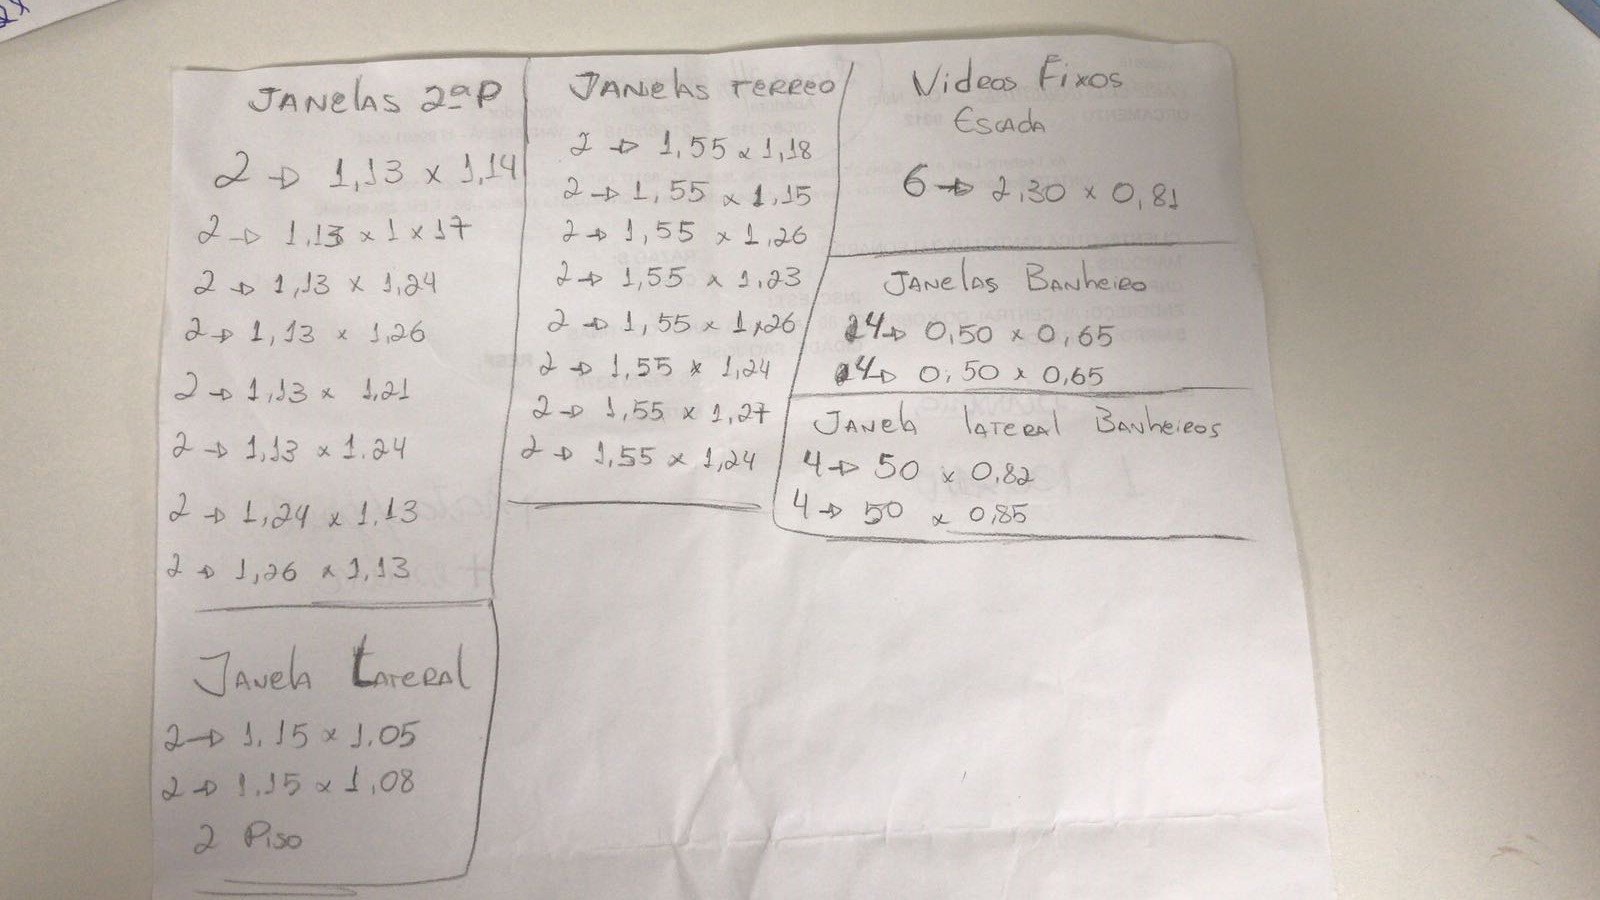 JANelas 2ªP
2 → 1,13 x 1,14
2 → 1,13 x 1 x 17
2 → 1,13 x 1,24
2 → 1,13 x 1,26
2 → 1,13 x 1,21
2 → 1,13 x 1.24
2 → 1,24 x 1,13
2 → 1,26 x 1,13
Janela LATERAL
2 → 1.15 x 1.05
2 → 1.15 x 1,08
2 Piso
JANelas Terreo
2 → 1,55 x 1,18
2 → 1,55 x 1,15
2 → 1,55 x 1,26
2 → 1,55 x 1,23
2 → 1,55 x 1x26
2 → 1,55 x 1,24
2 → 1,55 x 1,27
2 → 1,55 x 1,24
Videos Fixos
Escada
6 → 2,30 x 0,81
JANelas Banheiro
4 → 0,50 x 0,65
4 → 0,50 x 0,65
Janela lateral Banheiros
4 → 50 x 0,82
4 → 50 x 0,85